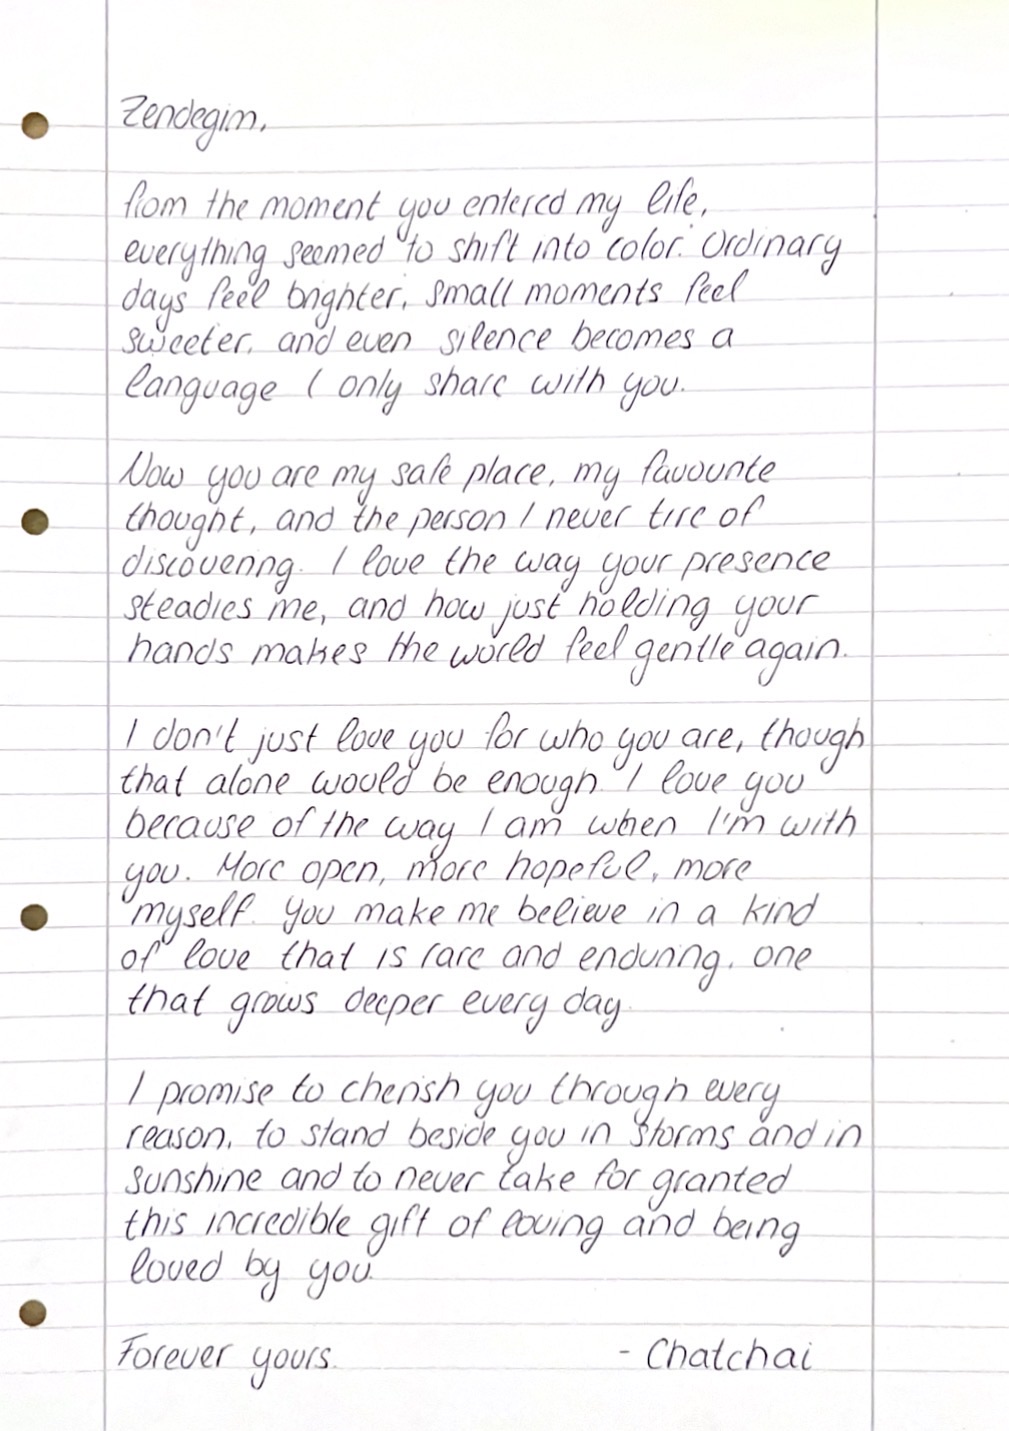 Zendegim,
from the moment you entered my life,
everything seemed to shift into color. Ordinary
days feel brighter, small moments feel
sweeter, and even silence becomes a
language I only share with you.
Now you are my safe place, my favourite
thought, and the person I never tire of
discovering. I love the way your presence
steadies me, and how just holding your
hands makes the world feel gentle again.
I don't just love you for who you are, though
that alone would be enough. I love you
because of the way I am when I'm with
you. More open, more hopeful, more
myself. You make me believe in a kind
of love that is rare and enduring, one
that grows deeper every day.
I promise to cherish you through every
reason, to stand beside you in storms and in
sunshine and to never take for granted
this incredible gift of loving and being
loved by you.
Forever yours. - Chatchai